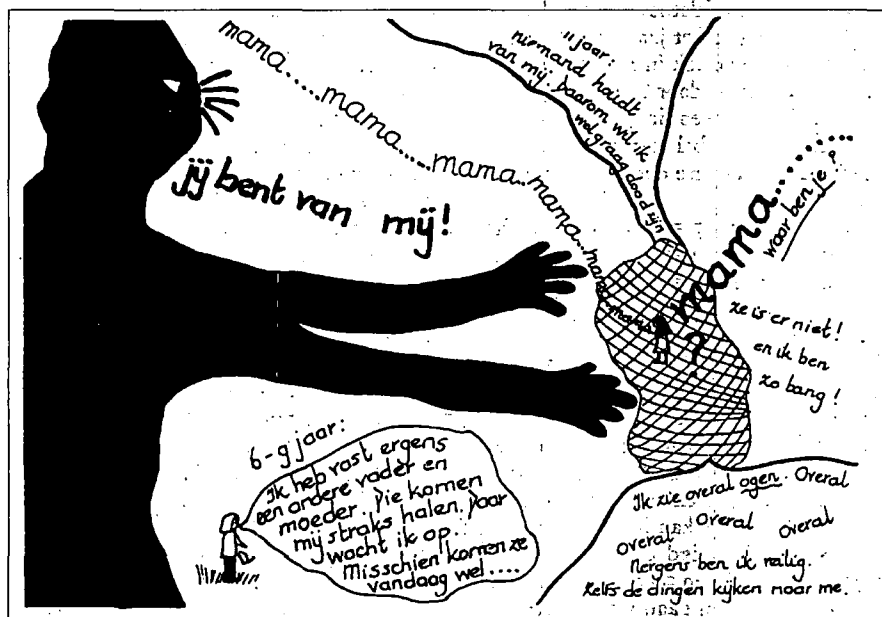 mama.....mama.....mama....mama..mama...mama...mama..mama
jij bent van mij!
11 jaar:
niemand houdt
van mij. daarom wil ik
wel graag dood zijn
mama......
?
waar ben je?
ze is er niet!
en ik ben
zo bang!
6-9 jaar:
Ik heb vast ergens
een andere vader en
moeder. Die komen
mij straks halen. Daar
wacht ik op.
Misschien komen ze
vandaag wel....
Ik zie overal ogen. Overal
overal Overal Overal
Nergens ben ik veilig.
Zelfs de dingen kijken naar me.